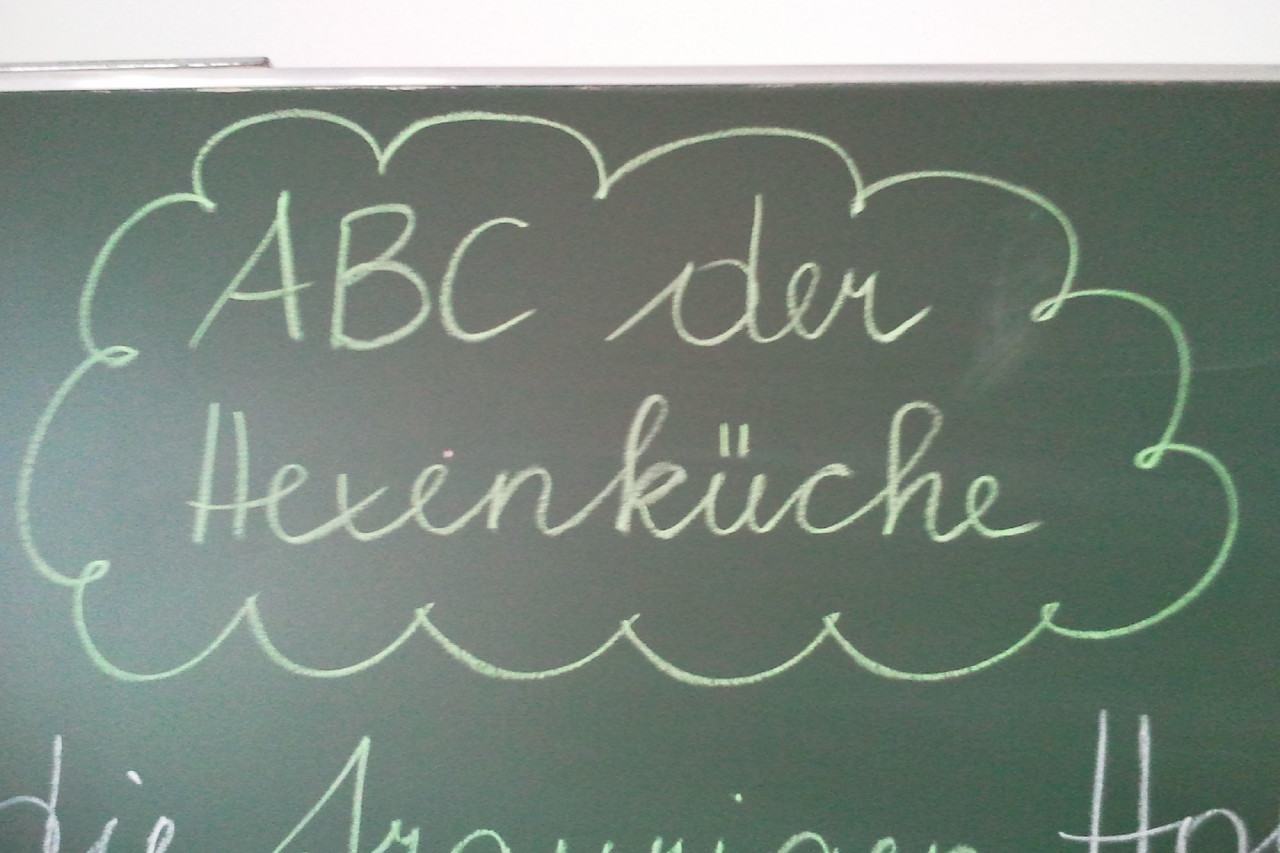 ABC der
Hexenküche
die